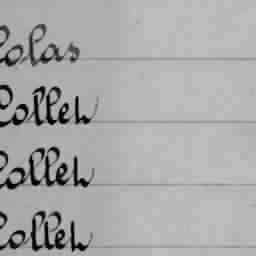 Colas
Collet
Collet
Collet